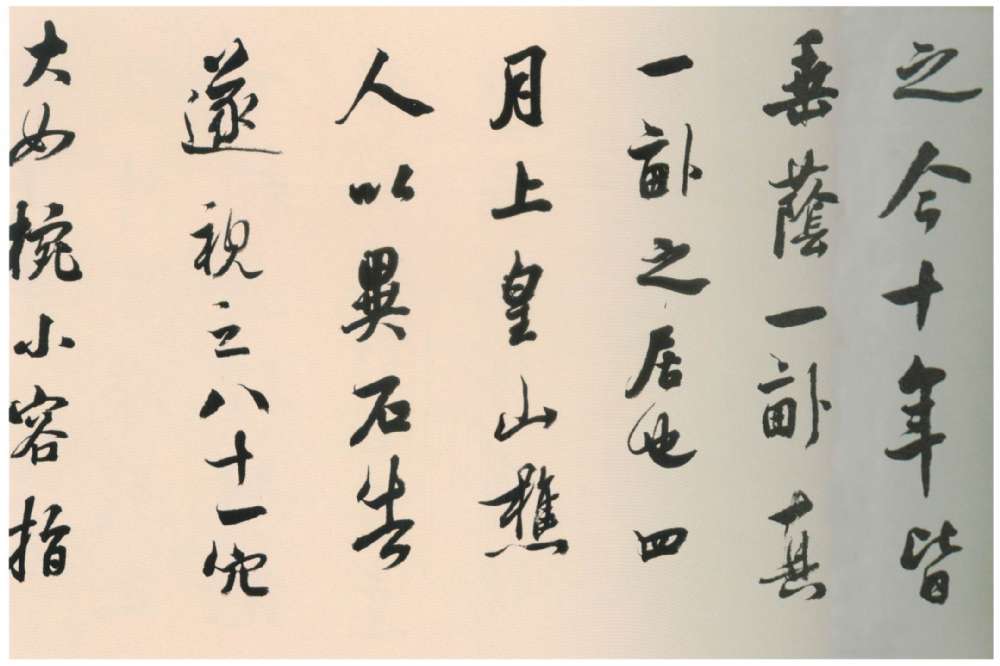 之今十年皆
垂蔭一畝真
一畝之居也四
月上皇山樵
人以異石告
遂視之八十一穴
大如椀小容指